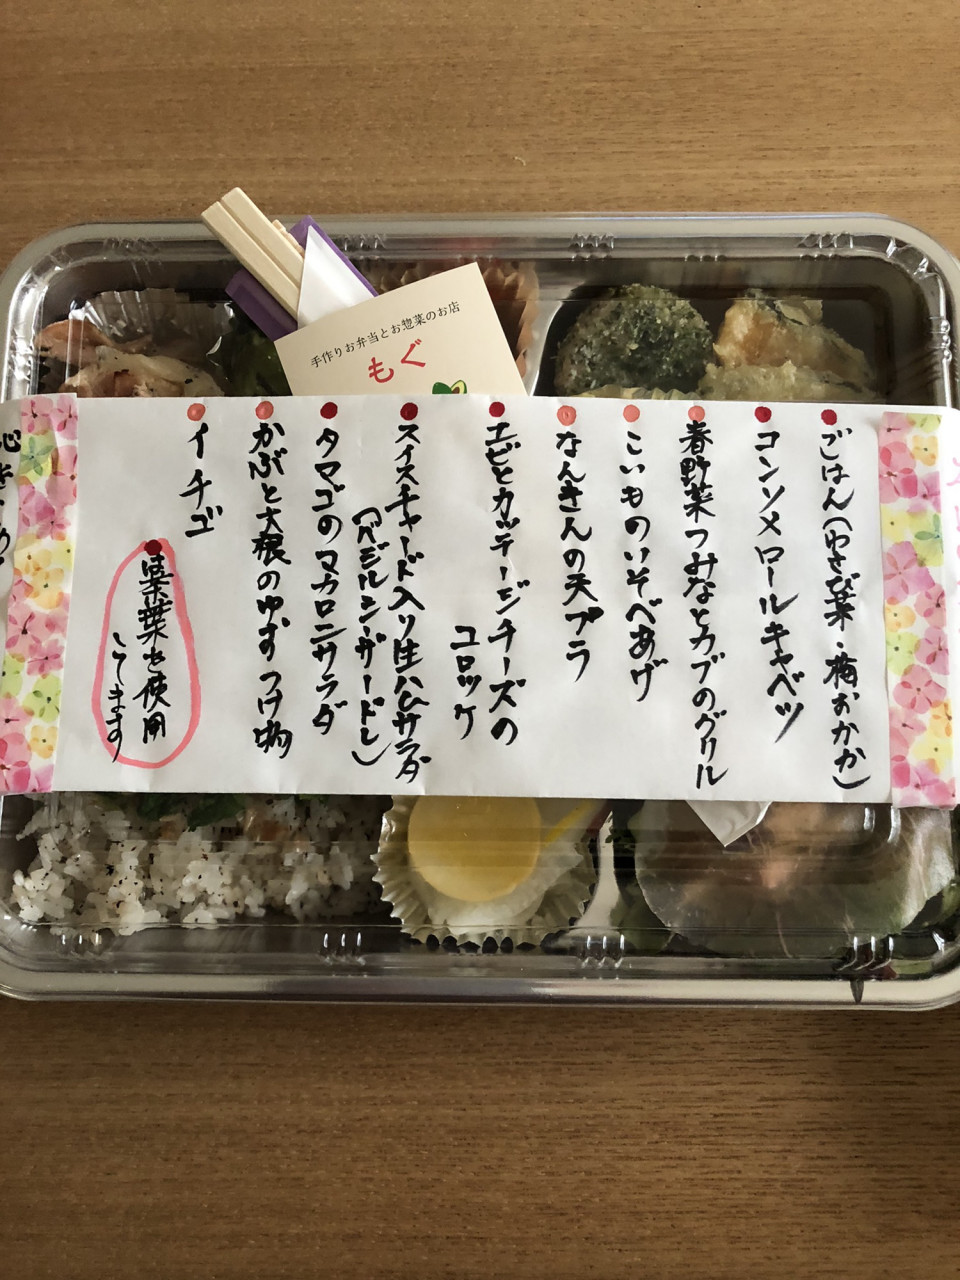 手作りお弁当とお惣菜のお店
もぐ
ごはん(わさび菜・梅おかか)
コンソメロールキャベツ
春野菜つみなとカブのグリル
こいものいそべあげ
なんきんの天プラ
エビとカッテージチーズの
コロッケ
スイスチャード入り生ハムサラダ
(バジルシーザードレ)
タマゴのマカロニサラダ
かぶと大根のゆずつけ物
イチゴ
葉を使用
してます